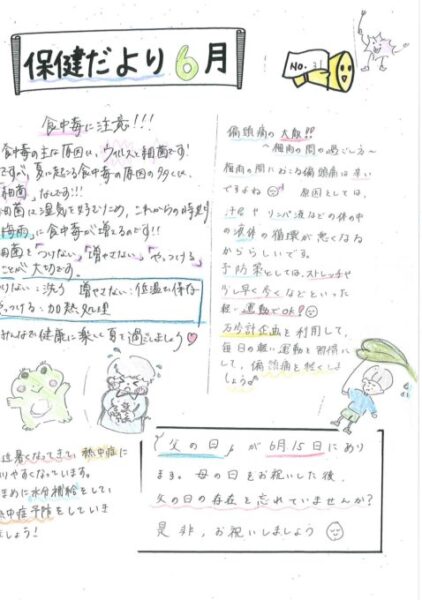 保健だより 6月
No. 3
食中毒に注意!!!
食中毒の主な原因は、ウイルスと細菌です!
ですが、夏に起こる食中毒の原因の多くは、
「細菌」なんです!!!
細菌は湿気を好むため、これからの時期
「梅雨」に食中毒が増えるのです!!
細菌を「つけない」「増やさない」「やっつける」
ことが大切です。
つけない:洗う 増やさない:低温で保存
やっつける:加熱処理
みんなで健康に楽しく夏を過ごしましょう♡
近暑くなってきて熱中症に
りやすくなっています。
まめに水分補給をして
熱中症予防をしていき
しょう!
偏頭痛の大敵!!
〜梅雨の間の過ごし方〜
梅雨の間におこる偏頭痛は辛い
ですよね 原因としては、
汗やリンパ液などの体の中
の液体の循環が悪くなる
かららしいです。
予防策としては、ストレッチや
少し早く歩くなどといった
軽い運動でOK!
万歩計企画を利用して、
毎日の軽い運動を習慣に
して、偏頭痛を軽くしま
しょう。
『父の日』が6月15日にあり
ます。母の日をお祝いした後、
父の日の存在を忘れていませんか?
是非、お祝いしましょう